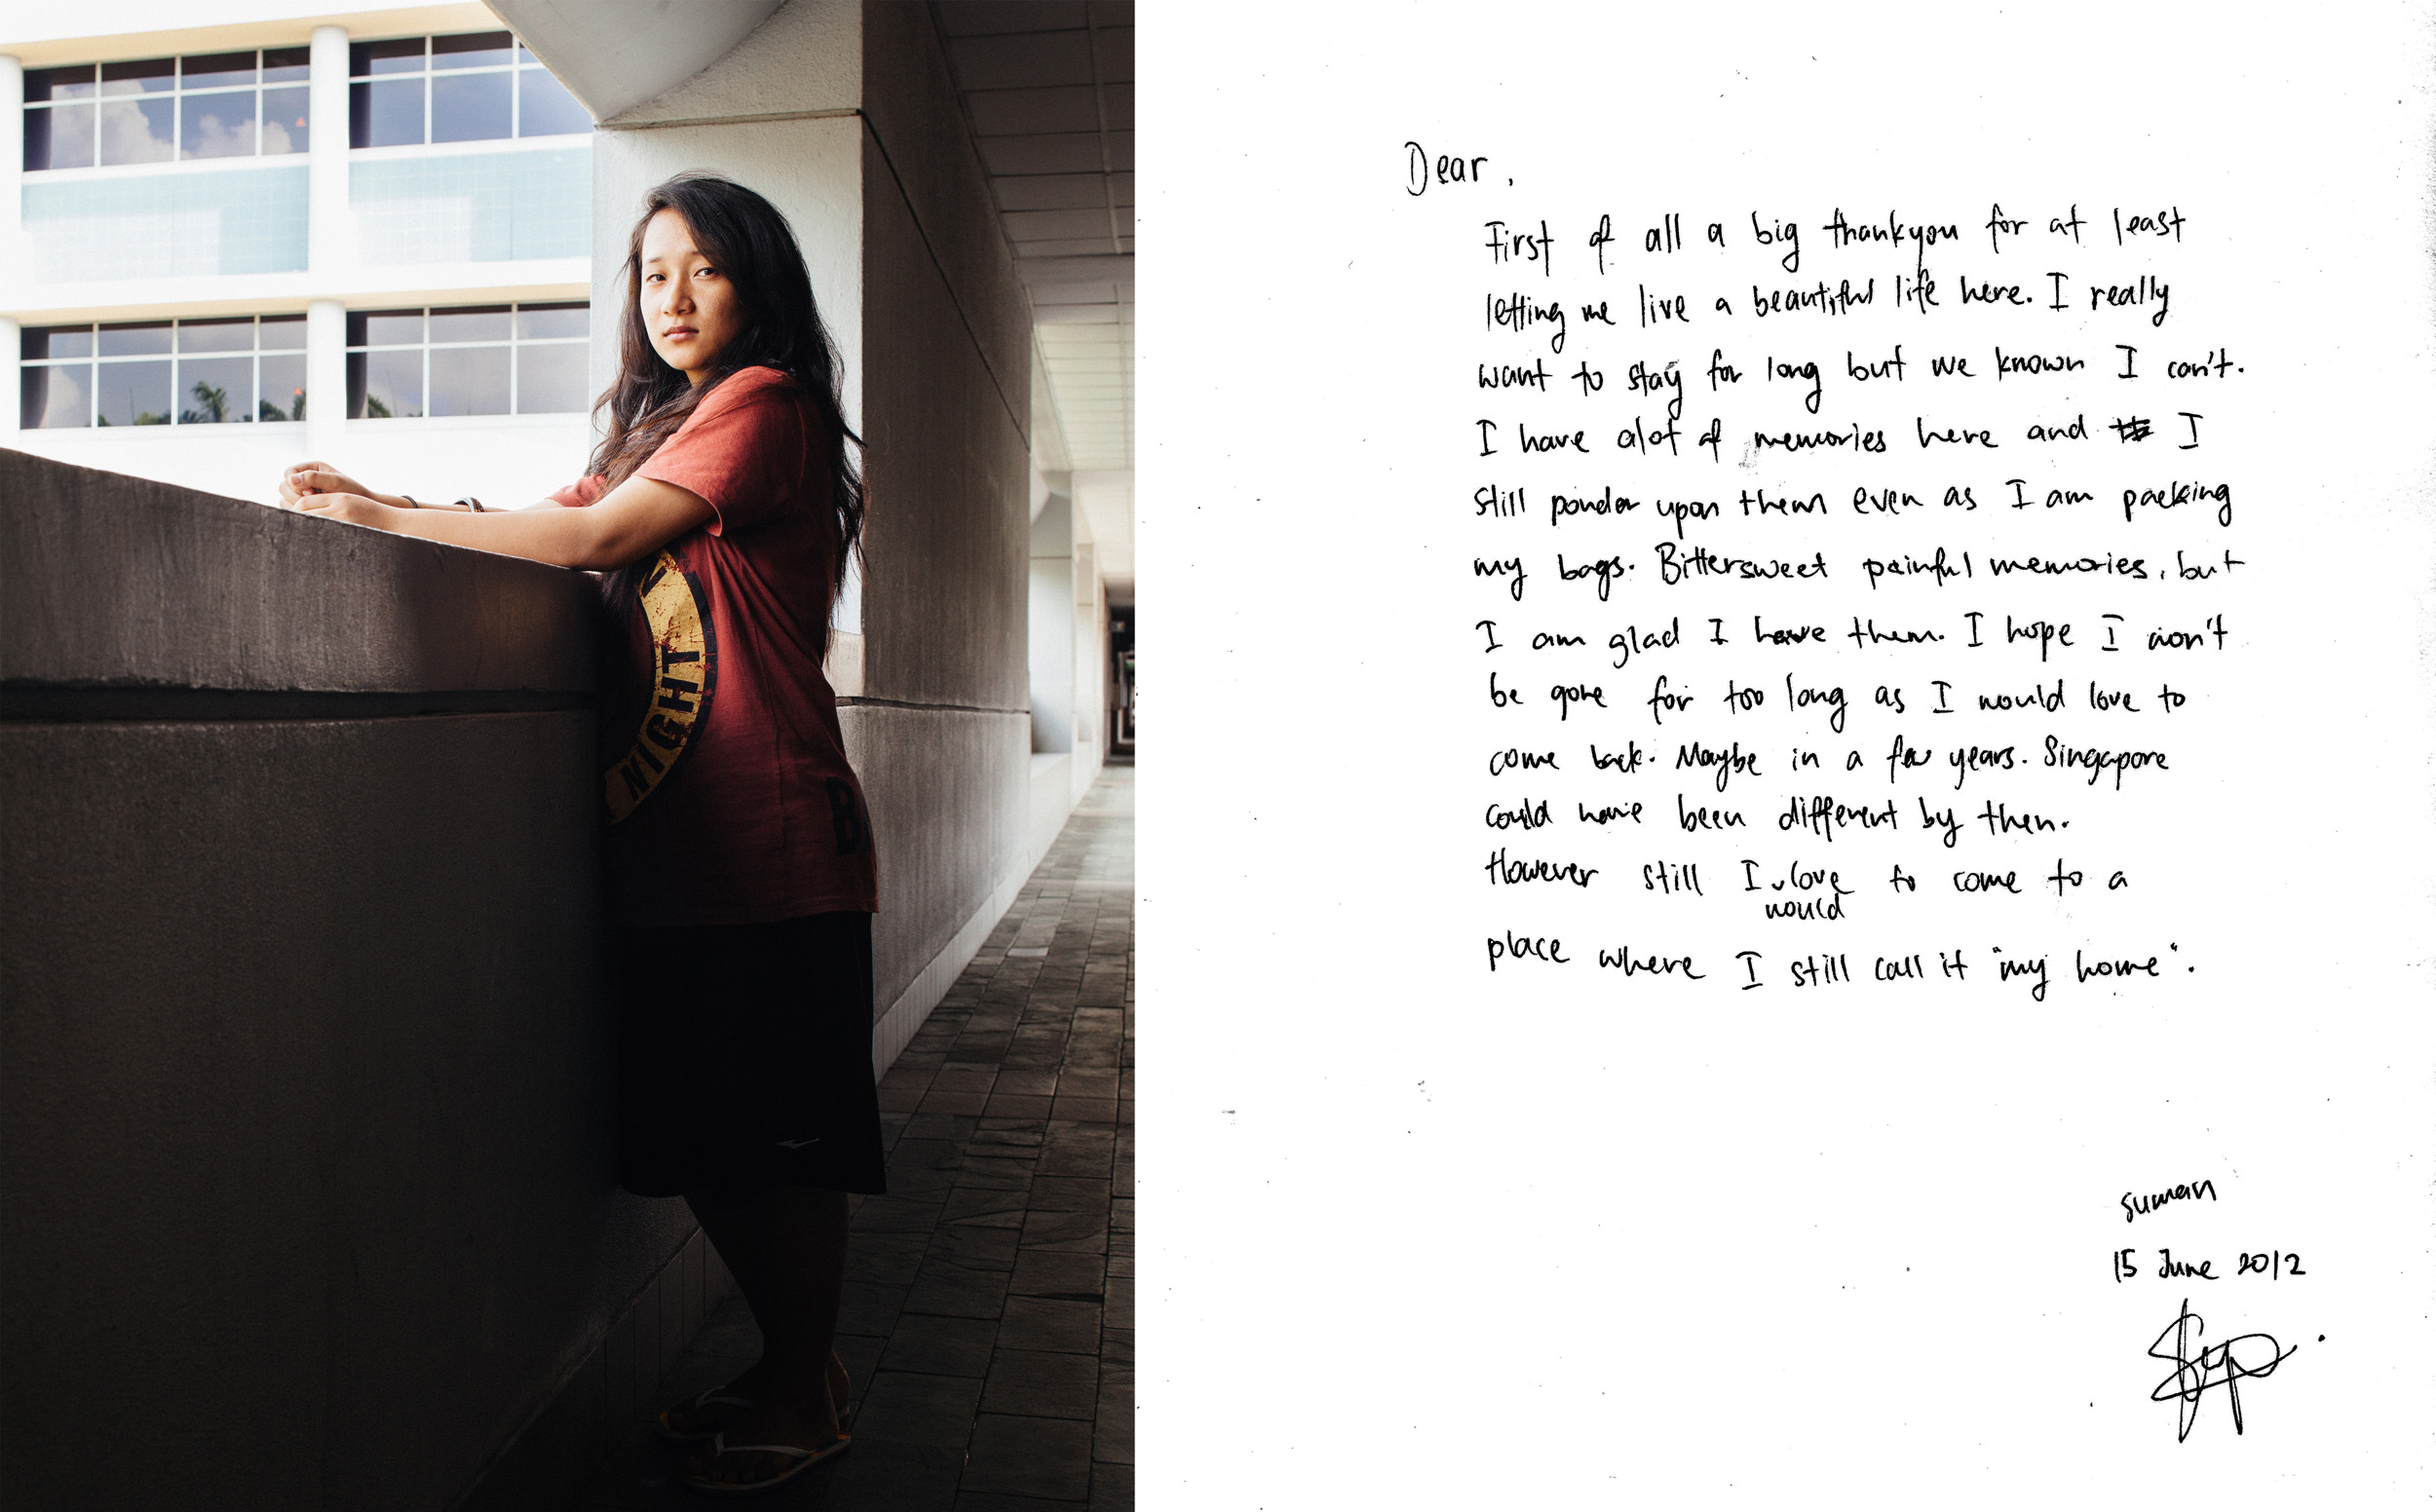 NIGHT
B
Dear,
First of all a big thankyou for at least
letting me live a beautiful life here. I really
want to stay for long but we known I can't.
I have alot of memories here and I
still ponder upon them even as I am packing
my bags. Bittersweet painful memories, but
I am glad I have them. I hope I won't
be gone for too long as I would love to
come back. Maybe in a few years. Singapore
could have been different by then.
However still I would love to come to a
place where I still call it "my home".
suman
15 June 2012